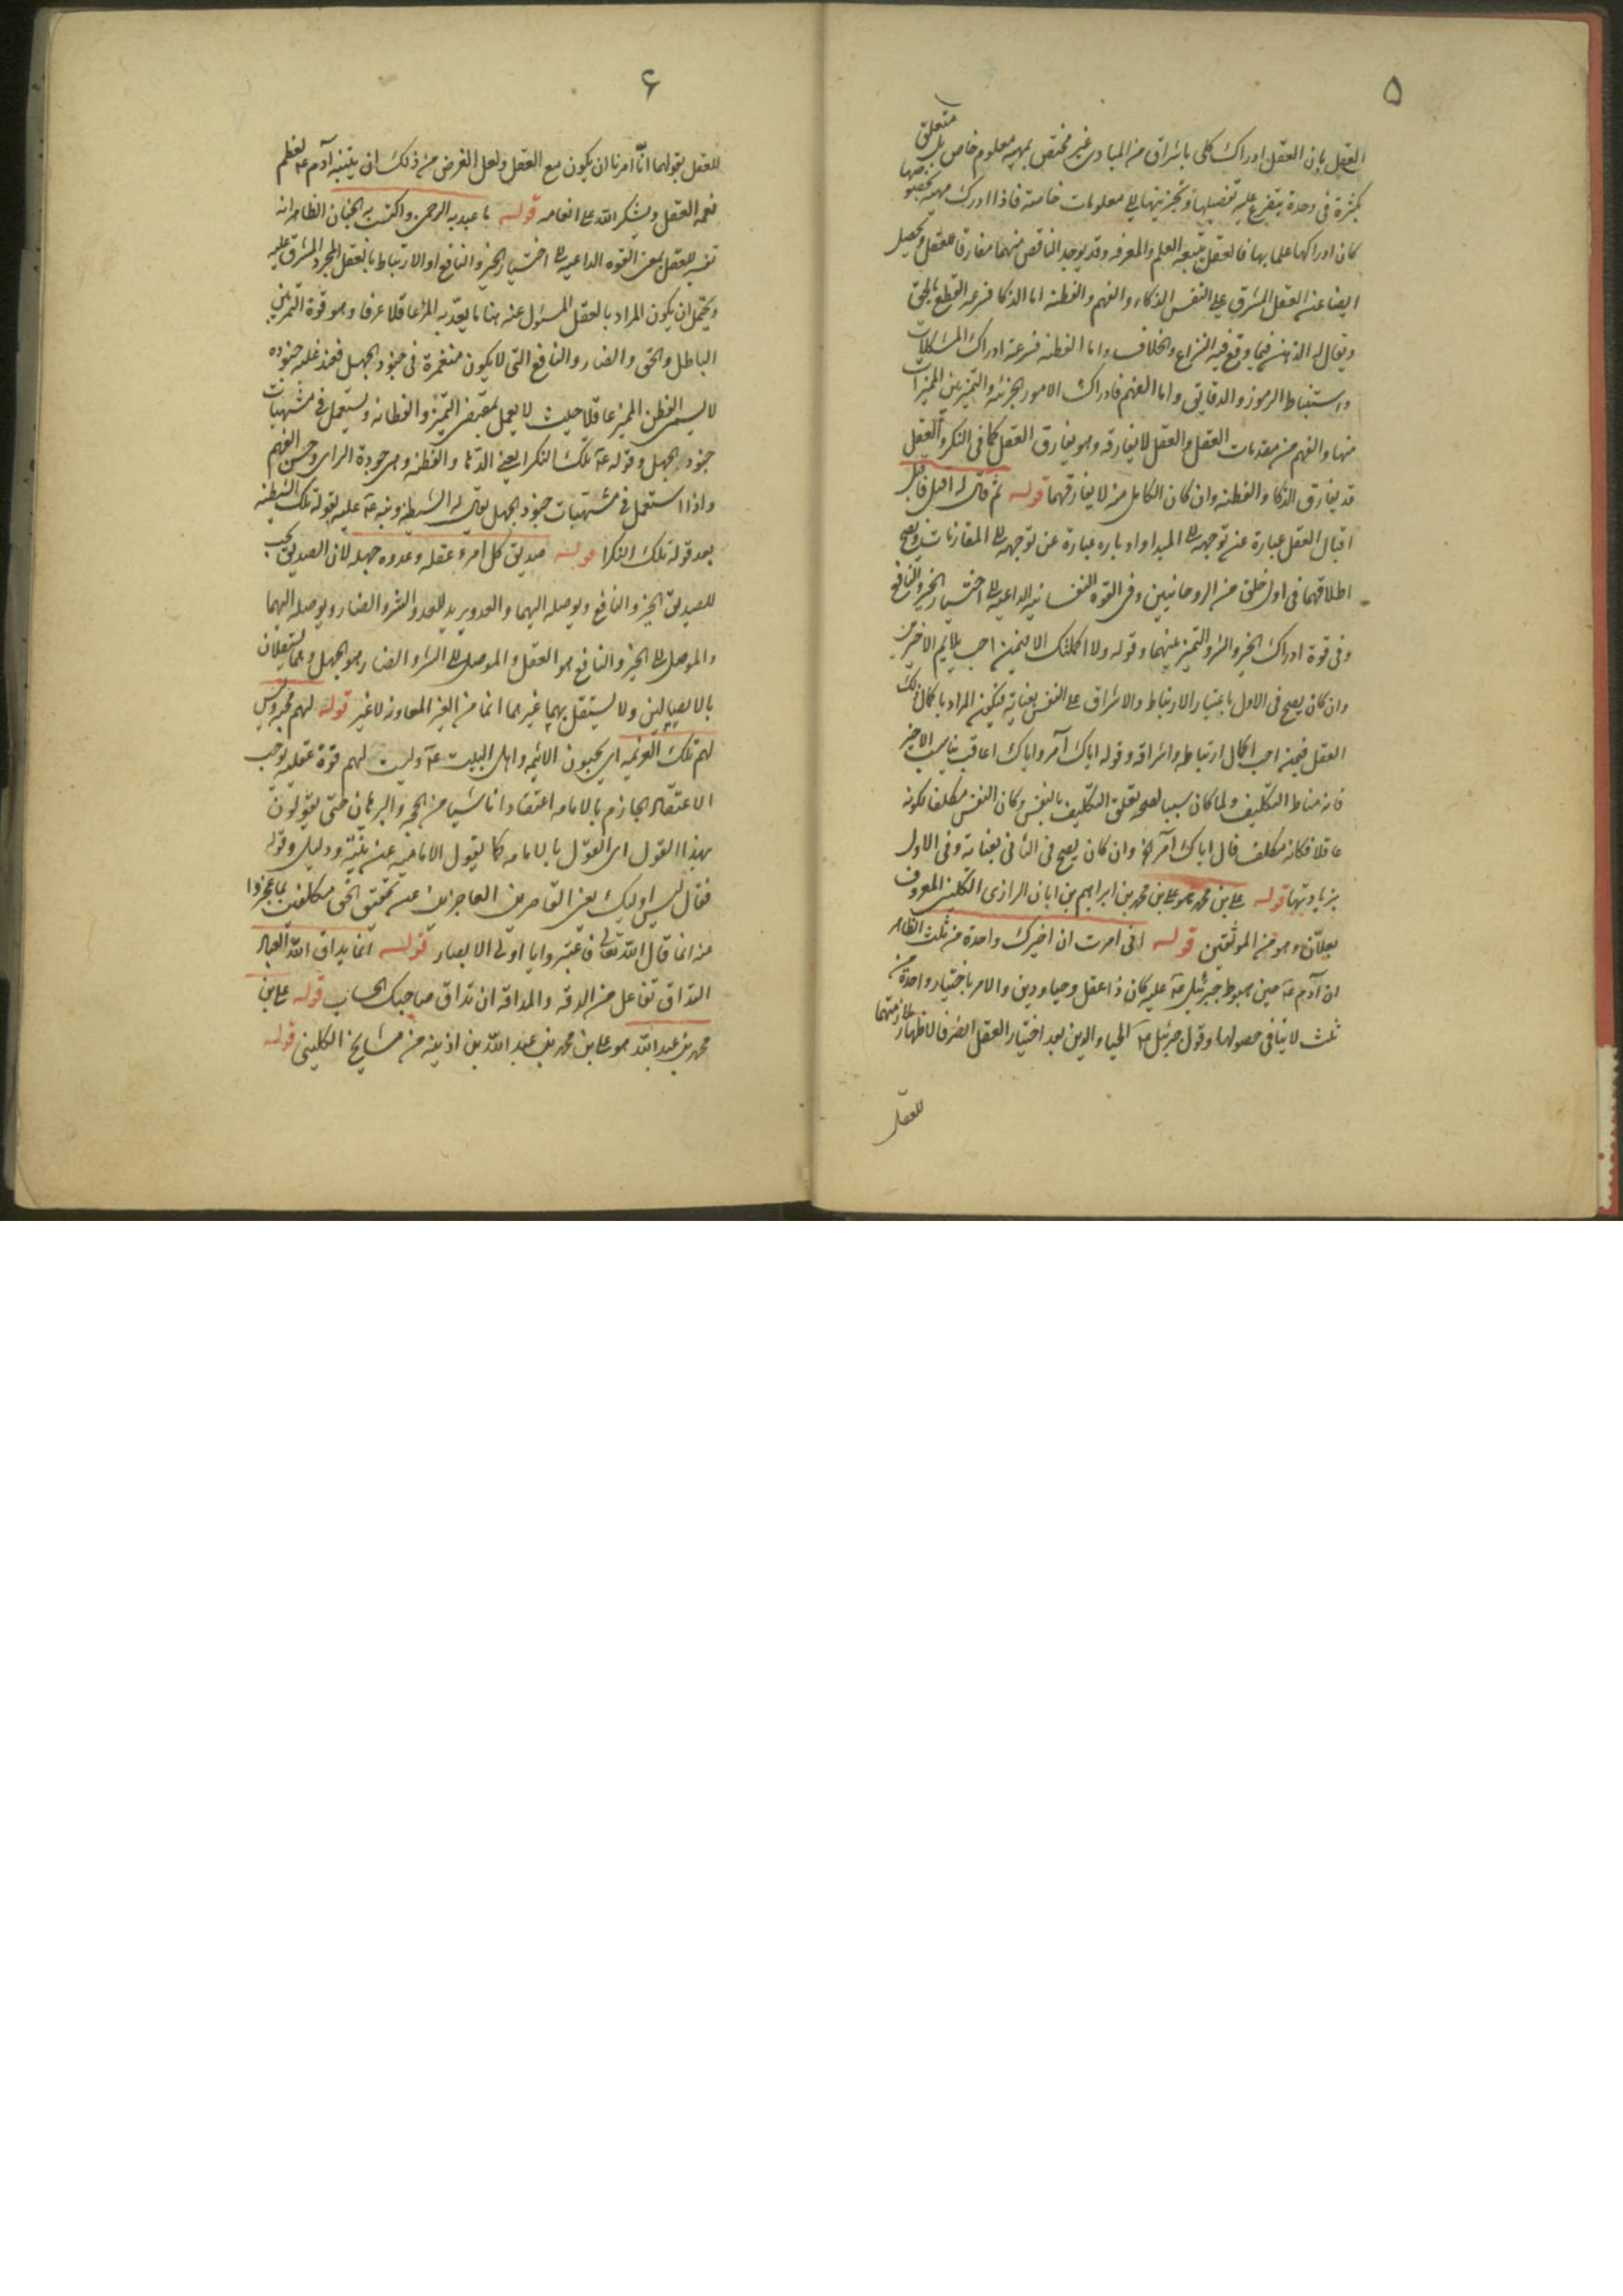 ۵
العقل بان العقل ادراك كلى باشراق من المبادى غير مختص بمهية معلوم خاص بل متعلق
بكثرة فى وحدة يتفرع عليه تفصيلها وتجزيتها الى معلومات خاصة فاذا ادرك مهية بخصوصها
كان ادراكها علما بها فالعقل يتبعه العلم والمعرفه وقد يوجد الناقص منهما مفارقا للعقل ويحصل
ايضا عند العقل المشرق على النفس الذكاء والفهم والفطنه اما الذكا فسرعة القطع بالحق
ويقال له الذهن فيما وقع فيه النزاع والخلاف واما الفطنه فسرعة ادراك المشكلات
واستنباط الرموز والدقايق واما الفهم فادراك الامور الجزئيه والتميز بين المميزات
منها والفهم من مقدمات العقل والعقل لا يفارقه وهو يفارق العقل كما فى النكرا والعقل
قد يفارق الذكا والفطنه وان كان الكامل من لا يفارقهما قوله ثم قال له اقبل فاقبل
اقبال العقل عبارة عن توجهه الى المبدا وادباره عبارة عن توجهه الى المقارنات ويصح
اطلاقهما فى اول خلق من الروحانيين وفى القوه النفسانيه الداعيه الى اختيار الخير والنافع
وفى قوة ادراك الخير والشر والتميز بينهما وقوله ولا اكملتك الا فيمن احب يلايم الاخيرين
وان كان يصح فى الاول باعتبار الارتباط والاشراق على النفس بعناية فيكون المراد باكمال ذلك
العقل فيمن احب اكمال ارتباطه واشراقه وقوله اياك آمر واياك اعاقب يناسب الاخير
فانه مناط التكليف ولما كان سببا لصحة تعلق التكليف بالنفس وكان النفس مكلفا لكونه
عاقلا فكانه مكلف قال اياك آمر الخ وان كان يصح فى الثانى بعناية وفى الاول
بزيادتها قوله على بن محمد هو على بن محمد بن ابراهيم بن ابان الرازى الكلينى المعروف
بعلان وهو من الموثقين قوله انى امرت ان اخيرك واحدة من ثلث الظاهر
ان آدم عه حين هبوط جبرئيل عه عليه كان ذا عقل وحيا ودين والامر باختيار واحدة من
ثلث لا ينافى حصولها وقول جبرئيل عه للحيا والدين بعد اختيار العقل انصرفا لاظهار ملازمتهما
للعقل
۶
للعقل بقولهما انا امرنا ان يكون مع العقل ولعل الغرض من ذلك ان يتنبه آدم عه لعظم
نعمة العقل ويشكر الله على انعامه قوله ما عبد به الرحمن واكتسب به الجنان الظاهر انه
تفسير للعقل بمعنى القوه الداعيه الى اختيار الخير والنافع او الارتباط بالعقل المجرد المشرق عليه
ويحتمل ان يكون المراد بالعقل المسئول عنه هنا ما يعد به المرء عاقلا عرفا وهو قوة التمييز بين
الباطل والحق والضار والنافع التى لا يكون منغمرة فى جنود الجهل فعند غلبة جنوده
لا يسمى الفطن المميز عاقلا حيث لا يعمل بمقتضى التميز والفطانه ويستعمل فى مشتهيات
جنود الجهل وقوله عه تلك النكرا يعنى الدها والفطنه وهى جودة الراى وحسن الفهم
واذا استعمل فى مشتهيات جنود الجهل يقال له الشيطنه ونبه عه عليه بقوله تلك الشيطنه
بعد قوله تلك النكرا قوله صديق كل امرء عقله وعدوه جهله لان الصديق يحب
للصديق الخير والنافع ويوصله اليهما والعدو يريد للعدو الشر والضار ويوصله اليهما
والموصل الى الخير والنافع هو العقل والموصل الى الشر والضار هو الجهل وهما يستقلان
بالايصالين ولا يستقل بهما غيرهما انما من الغير المعاونه لا غير قوله لهم محبه وليس
لهم تلك العزيمه اى يحبون الائمه واهل البيت عه وليست لهم قوة عقليه توجب
الاعتقاد الجازم بالامامه اعتقادا ناشيا من الحجه والبرهان حتى يقولون
بهذا القول اى القول بالامامه كما يقول الاماميه عن بينة ودليل وقوله
فقال ليس اوليك يعنى القاصرين العاجزين عن تحقيق الحق مكلفين بما عجزوا
عنه انما قال الله تعالى فاعتبروا يا اولى الابصار قوله انما يداق الله العباد
التداق تفاعل من الدقه والمداقه ان تداق صاحبك الحساب قوله على بن
محمد بن عبد الله هو على بن محمد بن عبد الله بن اذينه من مشايخ الكلينى قوله